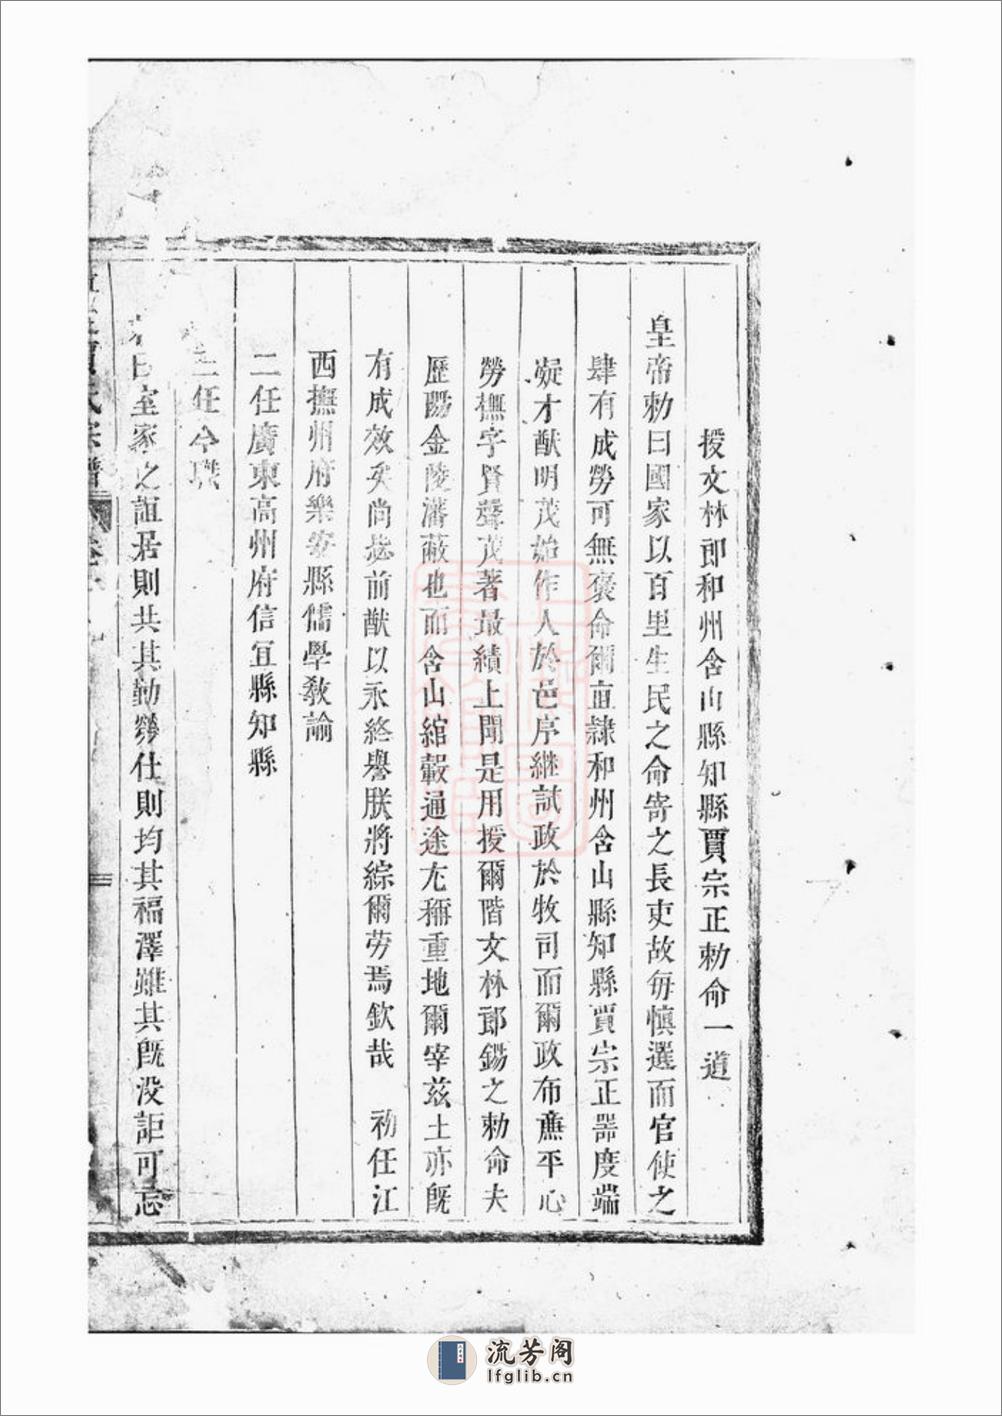 授文林郎和州含山縣知縣賈宗正勅命一道
皇帝勅曰國家以百里生民之命寄之長吏故毎慎選而官使之
肆有成勞可無褒命爾直隷和州含山縣知縣賈宗正噐度端
凝才猷明茂始作人於邑序継試政於牧司而爾政布薦平心
勞撫字賢聲茂著最績上聞是用授爾階文林郎錫之勅命夫
歷陽金陵藩蔽也而含山綰轂通途尤稱重地爾宰兹土亦旣
有成效矣尚毖前猷以永終譽朕將綜爾劳焉欽哉　初任江
西撫州府樂安縣儒學教諭
二任廣東高州府信宜縣知縣
三任今職
曰室家之誼居則共其勤勞仕則均其福澤雖其旣没詎可忘
賈氏宗譜 卷
流芳阁
lfglib.cn